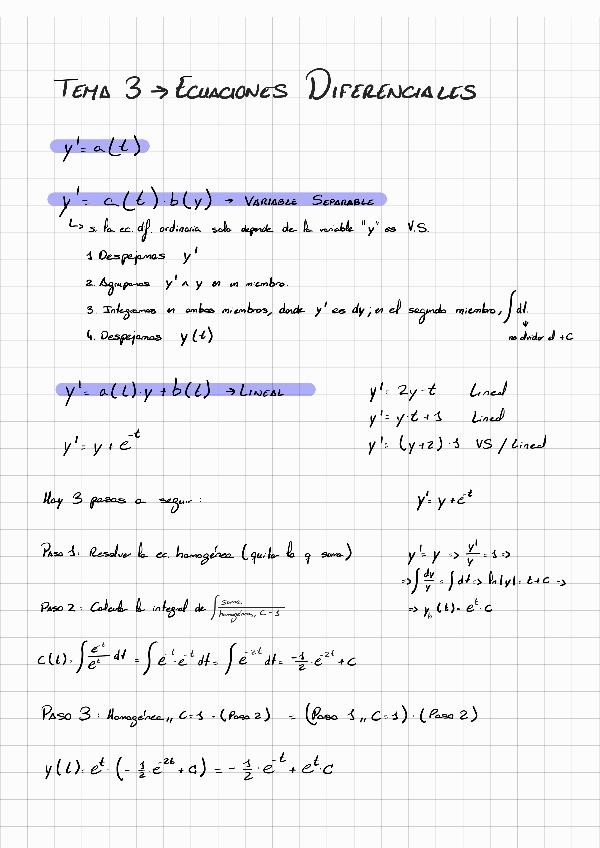 TEMA 3 → ECUACIONES DIFERENCIALES
y' = a(t)
y' = a(t)·b(y) → VARIABLE SEPARABLE
↳ si la ec. df. ordinaria solo depende de la variable "y" es V.S.
1 Despejamos y'
2. Agrupamos y' ∧ y en un miembro.
3. Integramos en ambos miembros, donde y' es dy; en el segundo miembro, ∫dt.
no olvidar el +C
4. Despejamos y(t)
y' = a(t)·y + b(t) → LINEAL
y' = 2y-t Lineal
y' = y·t+1 Lineal
y' = y + e^-t
y' = (y+2)·1 VS / Lineal
Hay 3 pasos a seguir:
y' = y + e^-t
PASO 1: Resolver la ec. homogénea (quitar lo q suma)
y' = y => y'/y = 1 =>
=> ∫ dy/y = ∫ dt => ln|y| = t + C ->
PASO 2: Calcular la integral de ∫ suma/homogénea, C=1
=> y_h(t) = e^t·C
C(t) = ∫ e^-t/e^t dt = ∫ e^-t·e^-t dt = ∫ e^-2t dt = -1/2·e^-2t + C
PASO 3: Homogénea,, C=1 · (Paso 2) = (Paso 1,, C=1)·(Paso 2)
y(t) = e^t·(-1/2·e^-2t + C) = -1/2·e^-t + e^t·C